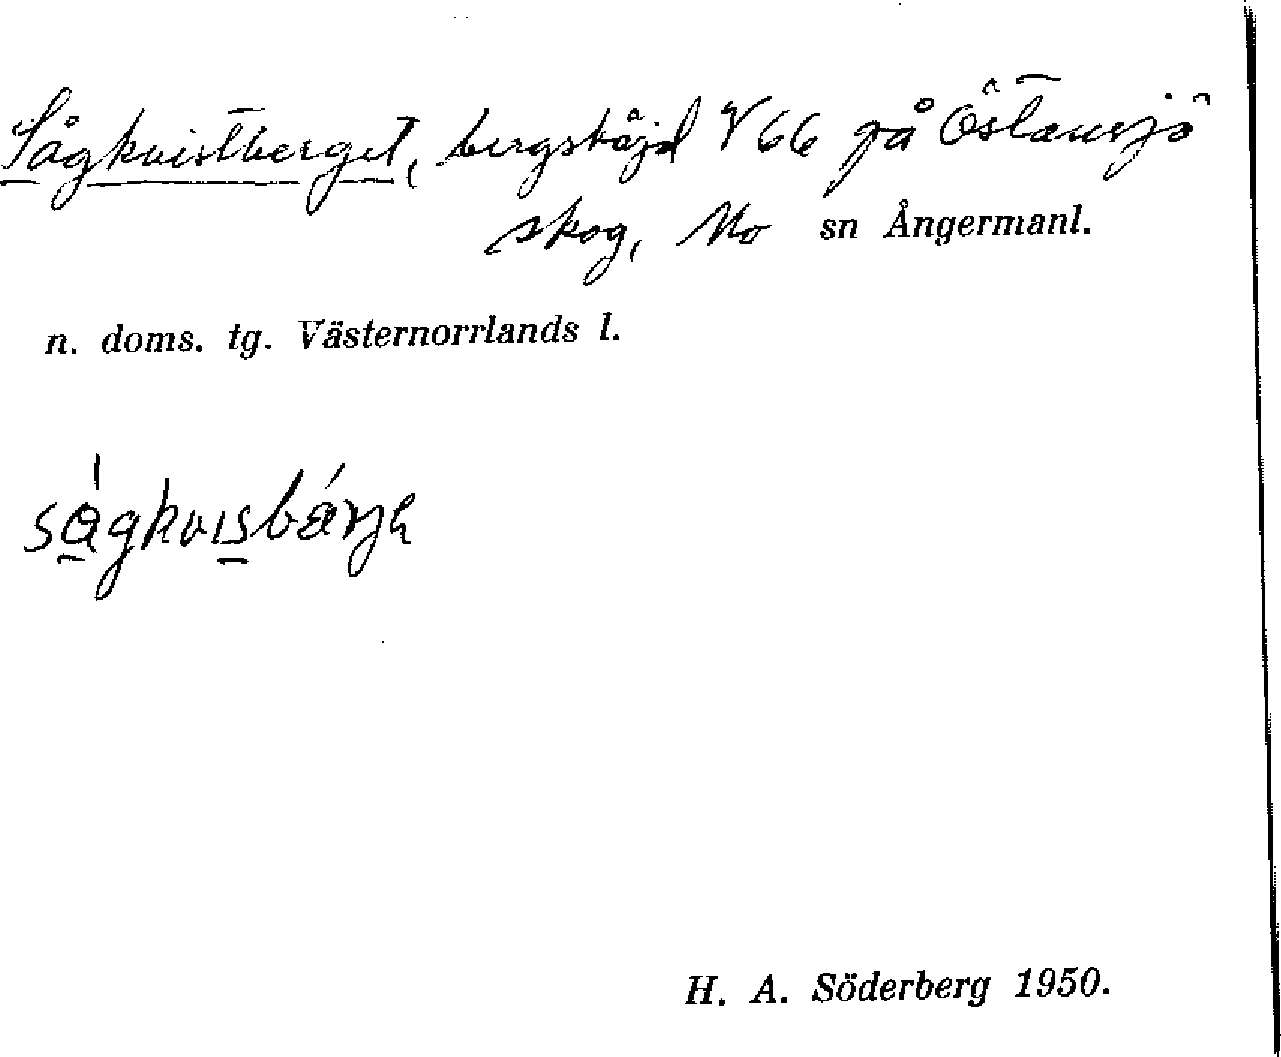 Sågkvistberget, bergshöjd V 66 på Östansjö
skog, Mo sn Ångermanl.
n. doms. tg. Västernorrlands l.
ságkvisbárje
H. A. Söderberg 1950.